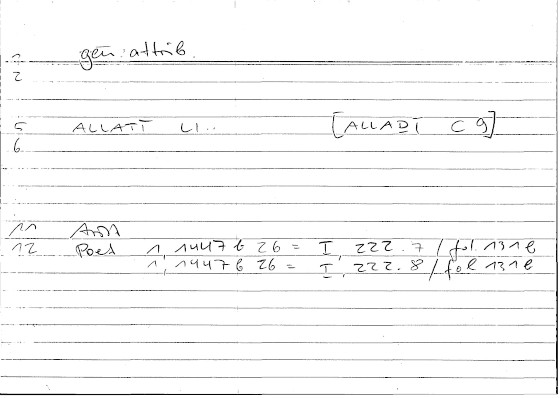 1 gen. attrib.
2
5 ALLATĪ LI.. [ALLADĪ C 9]
6
11 Arist
12 Poet 1, 1447 b 26 = I, 222.7 / fol 131 b
1, 1447 b 26 = I, 222.8 / fol 131 b